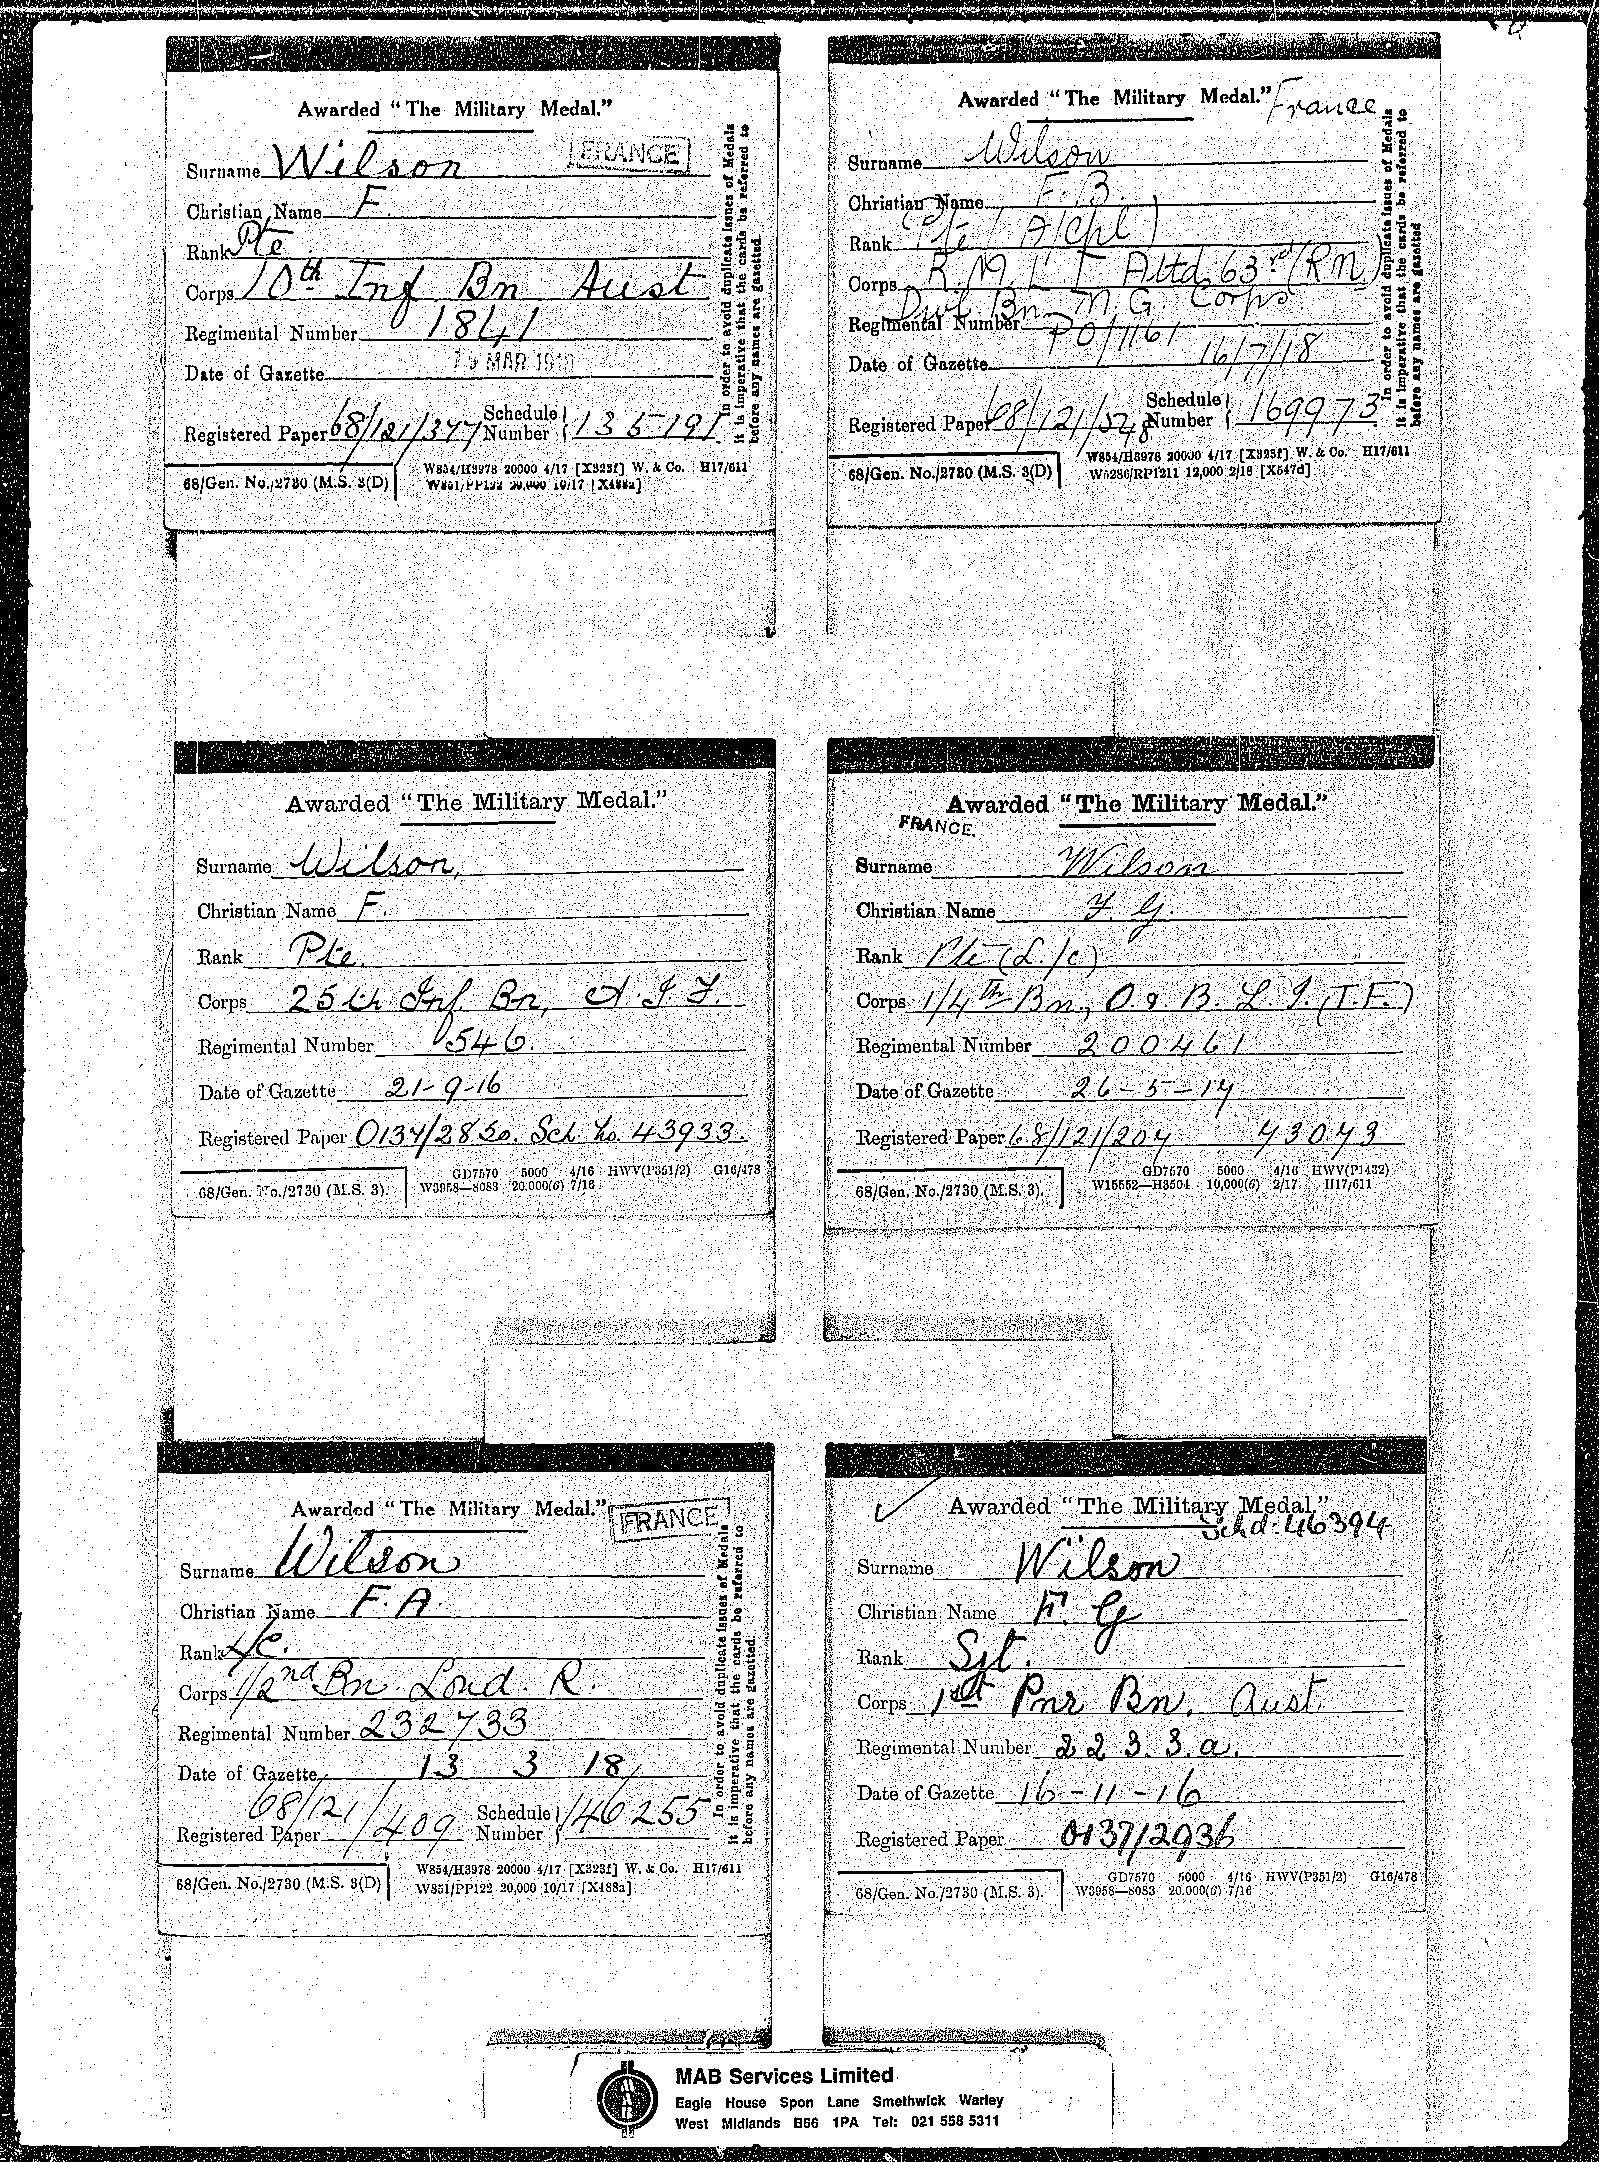 Awarded "The Military Medal."
FRANCE
Surname Wilson
Christian Name F.
Rank Pte
Corps 10th Inf Bn Aust
Regimental Number 1841
Date of Gazette MAR
Registered Paper 68/121/347 Schedule Number 135191
In order to avoid duplicate issues of Medals
it is imperative that the cards be referred to
before any names are gazetted.
68/Gen. No./2730 (M.S. 3(D)
W854/H3978 20000 4/17 [X323f] W. & Co. H17/611
W851/PP122 20,000 10/17 [X488a]
Awarded "The Military Medal." France
Surname Wilson
Christian Name F. B.
Rank Pte (A/Cpl)
Corps R. M. L I Attd 63rd (RN)
Div Bn M. G. Corps
Regimental Number PO/1161
Date of Gazette 16/7/18
Registered Paper 68/121/548 Schedule Number 169973
In order to avoid duplicate issues of Medals
it is imperative that the cards be referred to
before any names are gazetted
68/Gen. No./2730 (M.S. 3(D)
W854/H3978 20000 4/17 [X323f] W. & Co. H17/611
W5286/RP1211 12,000 2/18 [X547d]
Awarded "The Military Medal."
Surname Wilson,
Christian Name F.
Rank Pte.
Corps 25th Inf Bn, A. I. F.
Regimental Number 546.
Date of Gazette 21-9-16
Registered Paper 0137/2830. Sch No. 43933.
68/Gen. No./2730 (M.S. 3).
GD7570 5000 4/16 HWV(P351/2) G16/478
W3958—8083 20,000(6) 7/16
Awarded "The Military Medal."
FRANCE.
Surname Wilson
Christian Name F. G.
Rank Pte (L/c)
Corps 1/4th Bn, O & B. L. I. (T.F.)
Regimental Number 200461
Date of Gazette 26-5-17
Registered Paper 68/121/204 43043
68/Gen. No./2730 (M.S. 3).
GD7570 5000 4/16 HWV(P1432)
W15552—H3504 10,000(6) 2/17 H17/611
Awarded "The Military Medal."
FRANCE
Surname Wilson
Christian Name F. A.
Rank L/c.
Corps 1/2nd Bn. Lond. R.
Regimental Number 232733
Date of Gazette 13 3 18
Registered Paper 68/121/409 Schedule Number 146255
In order to avoid duplicate issues of Medals
it is imperative that the cards be referred to
before any names are gazetted.
68/Gen. No./2730 (M.S. 3(D)
W854/H3978 20000 4/17 [X323f] W. & Co. H17/611
W851/PP122 20,000 10/17 [X488a]
Awarded "The Military Medal."
Schd. 46394
Surname Wilson
Christian Name F. G
Rank Sjt.
Corps 1st Pnr Bn. Aust.
Regimental Number 2233.a.
Date of Gazette 16-11-16
Registered Paper 0137/2936
68/Gen. No./2730 (M.S. 3).
GD7570 5000 4/16 HWV(P351/2) G16/478
W3958—8083 20,000(6) 7/16
MAB Services Limited
Eagle House Spon Lane Smethwick Warley
West Midlands B66 1PA Tel: 021 558 5311